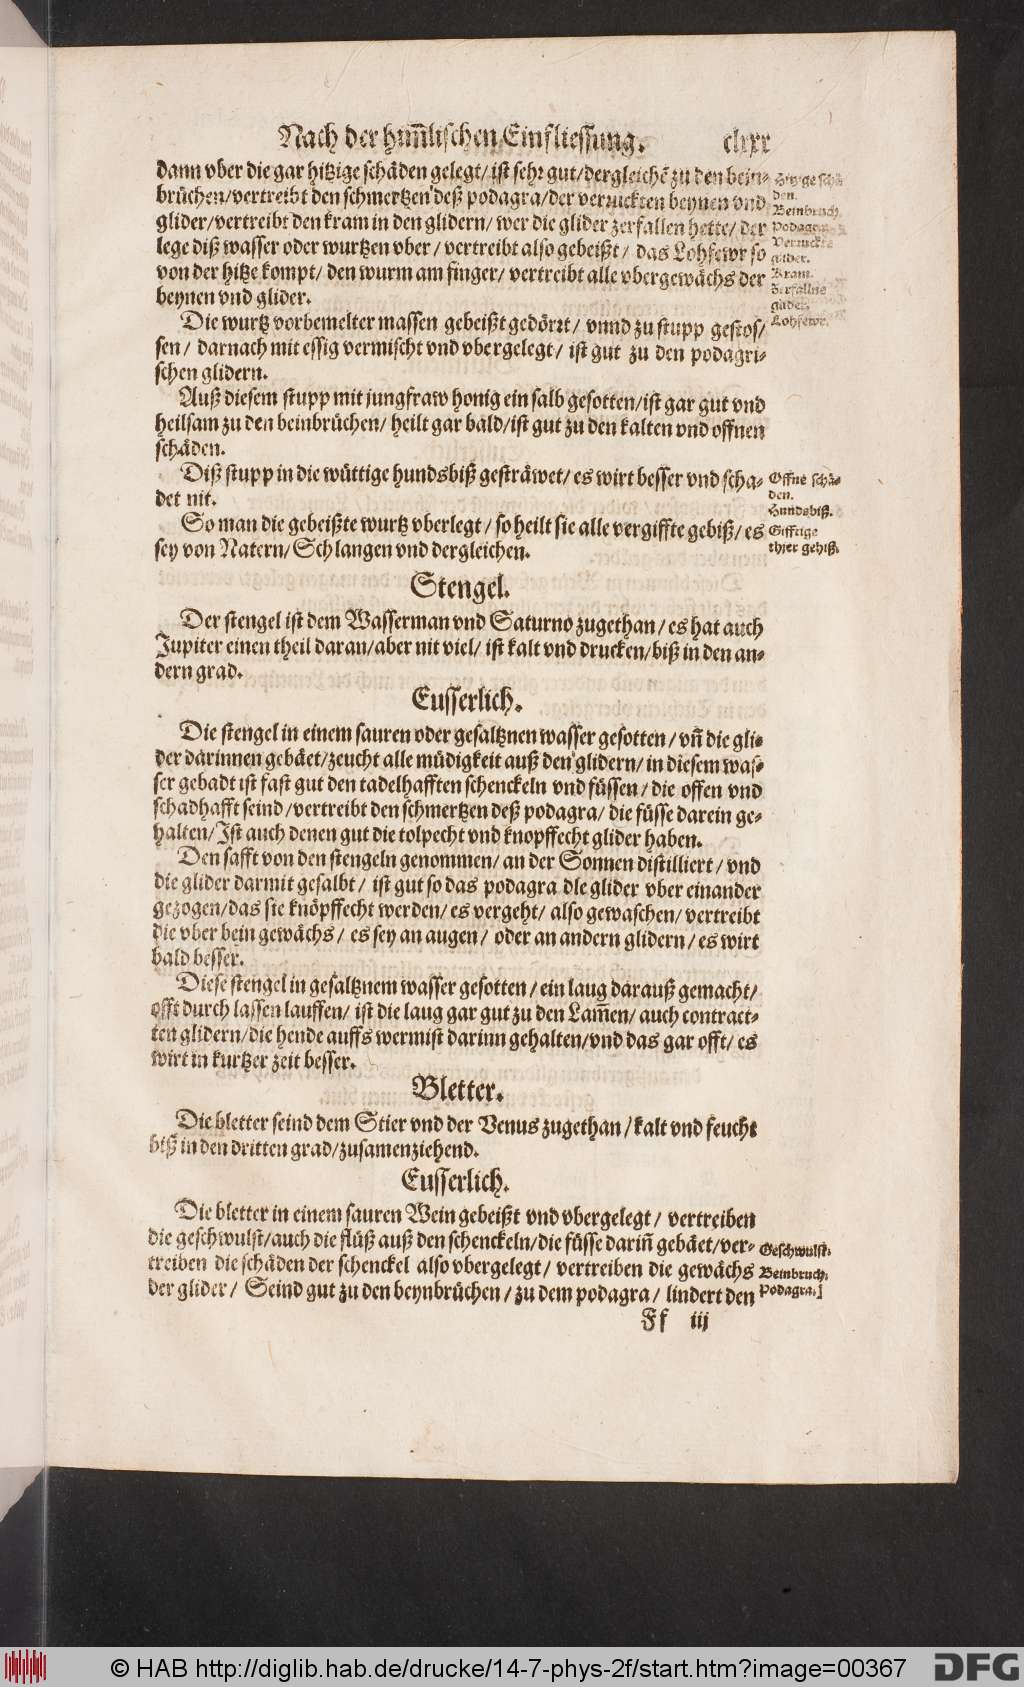 Nach der him̃lischen Einfliessung. clxx
dann vber die gar hitzige schäden gelegt/ ist sehr gut/ dergleichẽ zu den bein-
brüchen/ vertreibt den schmertzen deß podagra/ der verruckten beynen vnd
glider/ vertreibt den kram in den glidern/ wer die glider zerfallen hette/ der
lege diß wasser oder wurtzen vber/ vertreibt also gebeißt/ das Lohfewr so
von der hitze kompt/ den wurm am finger/ vertreibt alle vbergewächs der
beynen vnd glider.
Hitzige schä-
den.
Beinbruch.
Podagra.
Verruckte
glider.
Kram.
Zerfallne
glider.
Lohfewr.
Die wurtz vorbemelter massen gebeißt gedörrt/ vnnd zu stupp gestos/
sen/ darnach mit essig vermischt vnd vbergelegt/ ist gut zu den podagri-
schen glidern.
Auß diesem stupp mit jungfraw honig ein salb gesotten/ ist gar gut vnd
heilsam zu den beinbrüchen/ heilt gar bald/ ist gut zu den kalten vnd offnen
schäden.
Diß stupp in die wüttige hundsbiß gesträwet/ es wirt besser vnd scha-
det nit.
So man die gebeißte wurtz vberlegt/ so heilt sie alle vergiffte gebiß/ es
sey von Natern/ Schlangen vnd dergleichen.
Offne schä-
den.
Hundsbiß.
Gifftige
thier gebiß.
Stengel.
Der stengel ist dem Wasserman vnd Saturno zugethan/ es hat auch
Jupiter einen theil daran/ aber nit viel/ ist kalt vnd drucken/ biß in den an-
dern grad.
Eusserlich.
Die stengel in einem sauren oder gesaltznen wasser gesotten/ vñ die gli-
der darinnen gebäet/ zeucht alle müdigkeit auß den glidern/ in diesem was-
ser gebadt ist fast gut den tadelhafften schenckeln vnd füssen/ die offen vnd
schadhafft seind/ vertreibt den schmertzen deß podagra/ die füsse darein ge-
halten/ Ist auch denen gut die tolpecht vnd knopffecht glider haben.
Den safft von den stengeln genommen/ an der Sonnen distilliert/ vnd
die glider darmit gesalbt/ ist gut so das podagra dle glider vber einander
gezogen/ das sie knöpffecht werden/ es vergeht/ also gewaschen/ vertreibt
die vber bein gewächs/ es sey an augen/ oder an andern glidern/ es wirt
bald besser.
Diese stengel in gesaltznem wasser gesotten/ ein laug darauß gemacht/
offt durch lassen lauffen/ ist die laug gar gut zu den Lam̃en/ auch contract-
ten glidern/ die hende auffs wermist darinn gehalten/ vnd das gar offt/ es
wirt in kurtzer zeit besser.
Bletter.
Die bletter seind dem Stier vnd der Venus zugethan/ kalt vnd feucht
biß in den dritten grad/ zusamenziehend.
Eusserlich.
Die bletter in einem sauren Wein gebeißt vnd vbergelegt/ vertreiben
die geschwulst/ auch die flüß auß den schenckeln/ die füsse dariñ gebäet/ ver-
treiben die schäden der schenckel also vbergelegt/ vertreiben die gewächs
der glider/ Seind gut zu den beynbrüchen/ zu dem podagra/ lindert den
Geschwulst.
Beinbruch.
Podagra.
Ff iij
© HAB http://diglib.hab.de/drucke/14-7-phys-2f/start.htm?image=00367
DFG